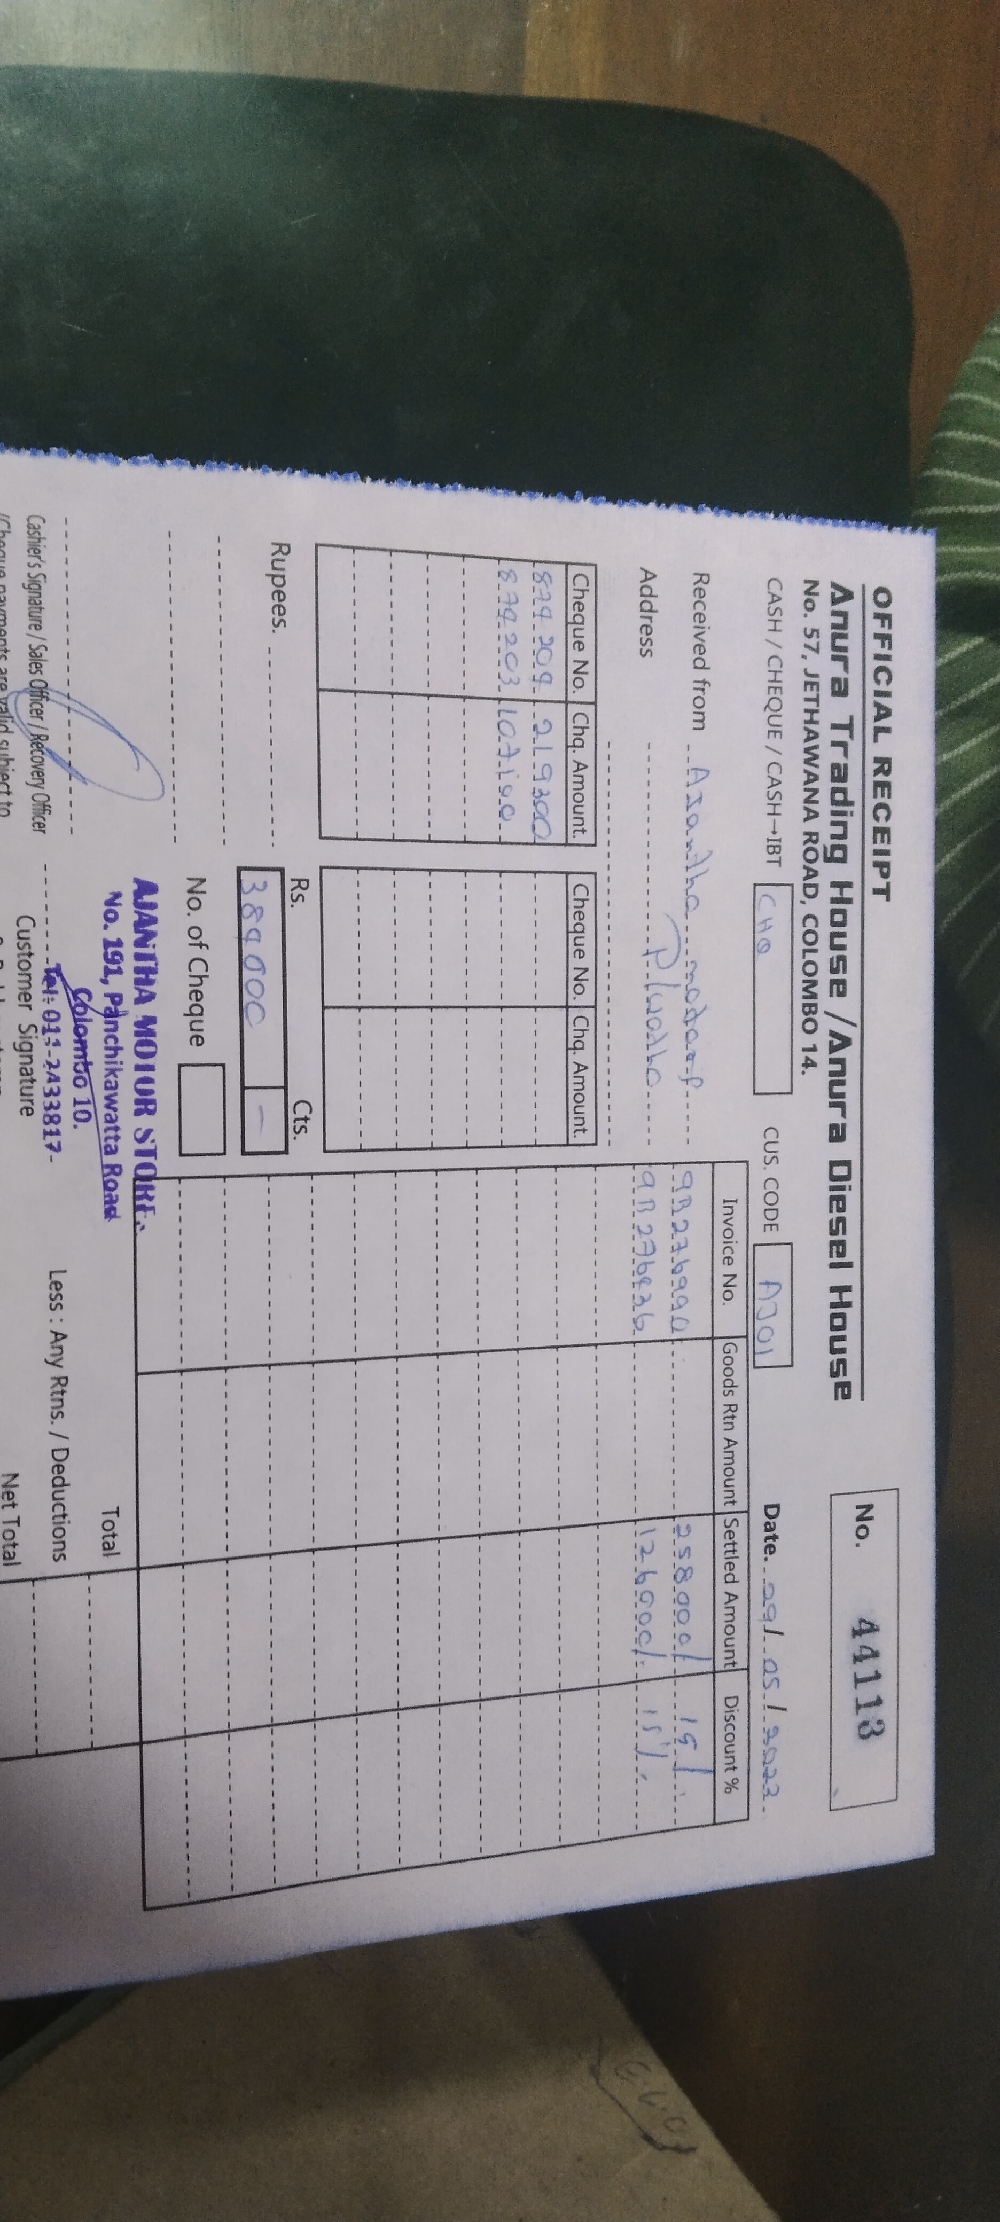 OFFICIAL RECEIPT
No. 44113
Anura Trading House / Anura Diesel House
No. 57, JETHAWANA ROAD, COLOMBO 14.
CASH / CHEQUE / CASH→IBT CHQ CUS. CODE AJ01 Date. 29/05/2023
Received from Ajantha motors
Address
Cheque No. Chq. Amount. Cheque No. Chq. Amount.
879209 219300
879203 107100
Invoice No. Goods Rtn Amount Settled Amount Discount %
258000/ 15/.
126000/ 15%.
Rupees.
Rs. Cts.
384000 —
No. of Cheque
AJANTHA MOTOR STORE.
No. 191, Panchikawatta Road
Colombo 10.
Tel: 011-2433817-
Total
Less : Any Rtns. / Deductions
Net Total
Cashier's Signature / Sales Officer / Recovery Officer
Customer Signature
(Cheque payments are valid subject to